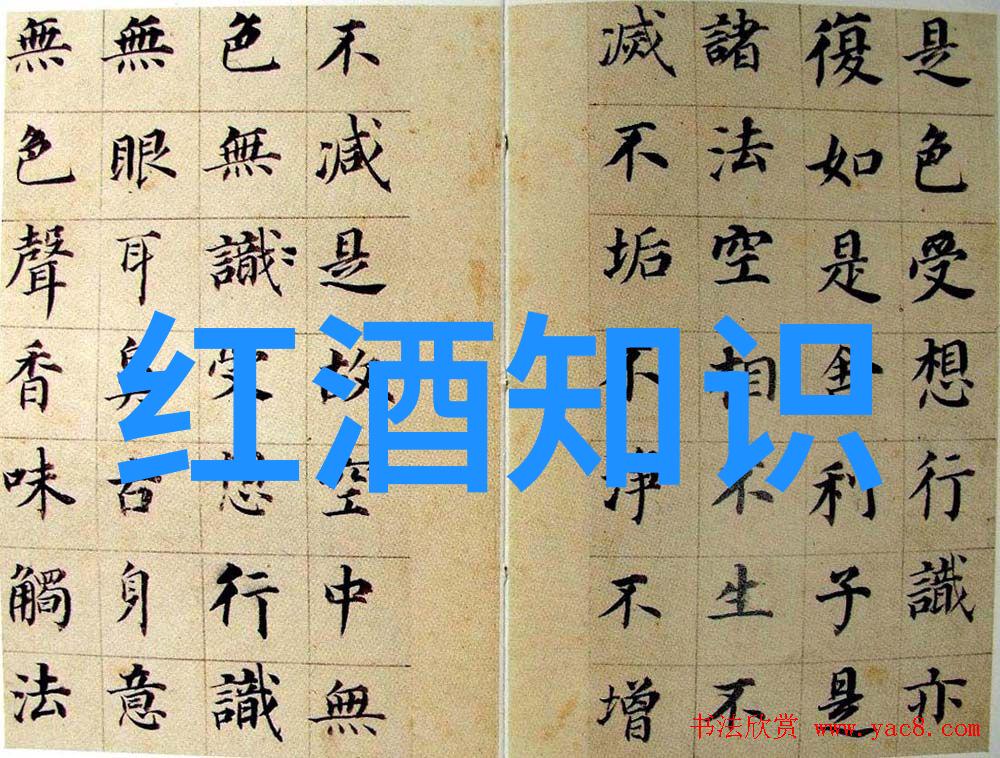 是色受想行識亦
復如是舍利子是
諸法空相不生不
滅不垢不淨不增
不減是故空中無
色無識受想行識
無眼耳鼻舌身意
無色聲香味觸法
红酒知识
书法欣赏 www.yac8.com